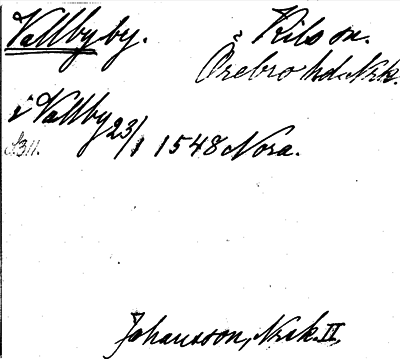 Vallby by. Kils sn.
Örebro hd. Nrk.
i Vallby 23/1 1548 Nora.
Johansson, Nrk. II,